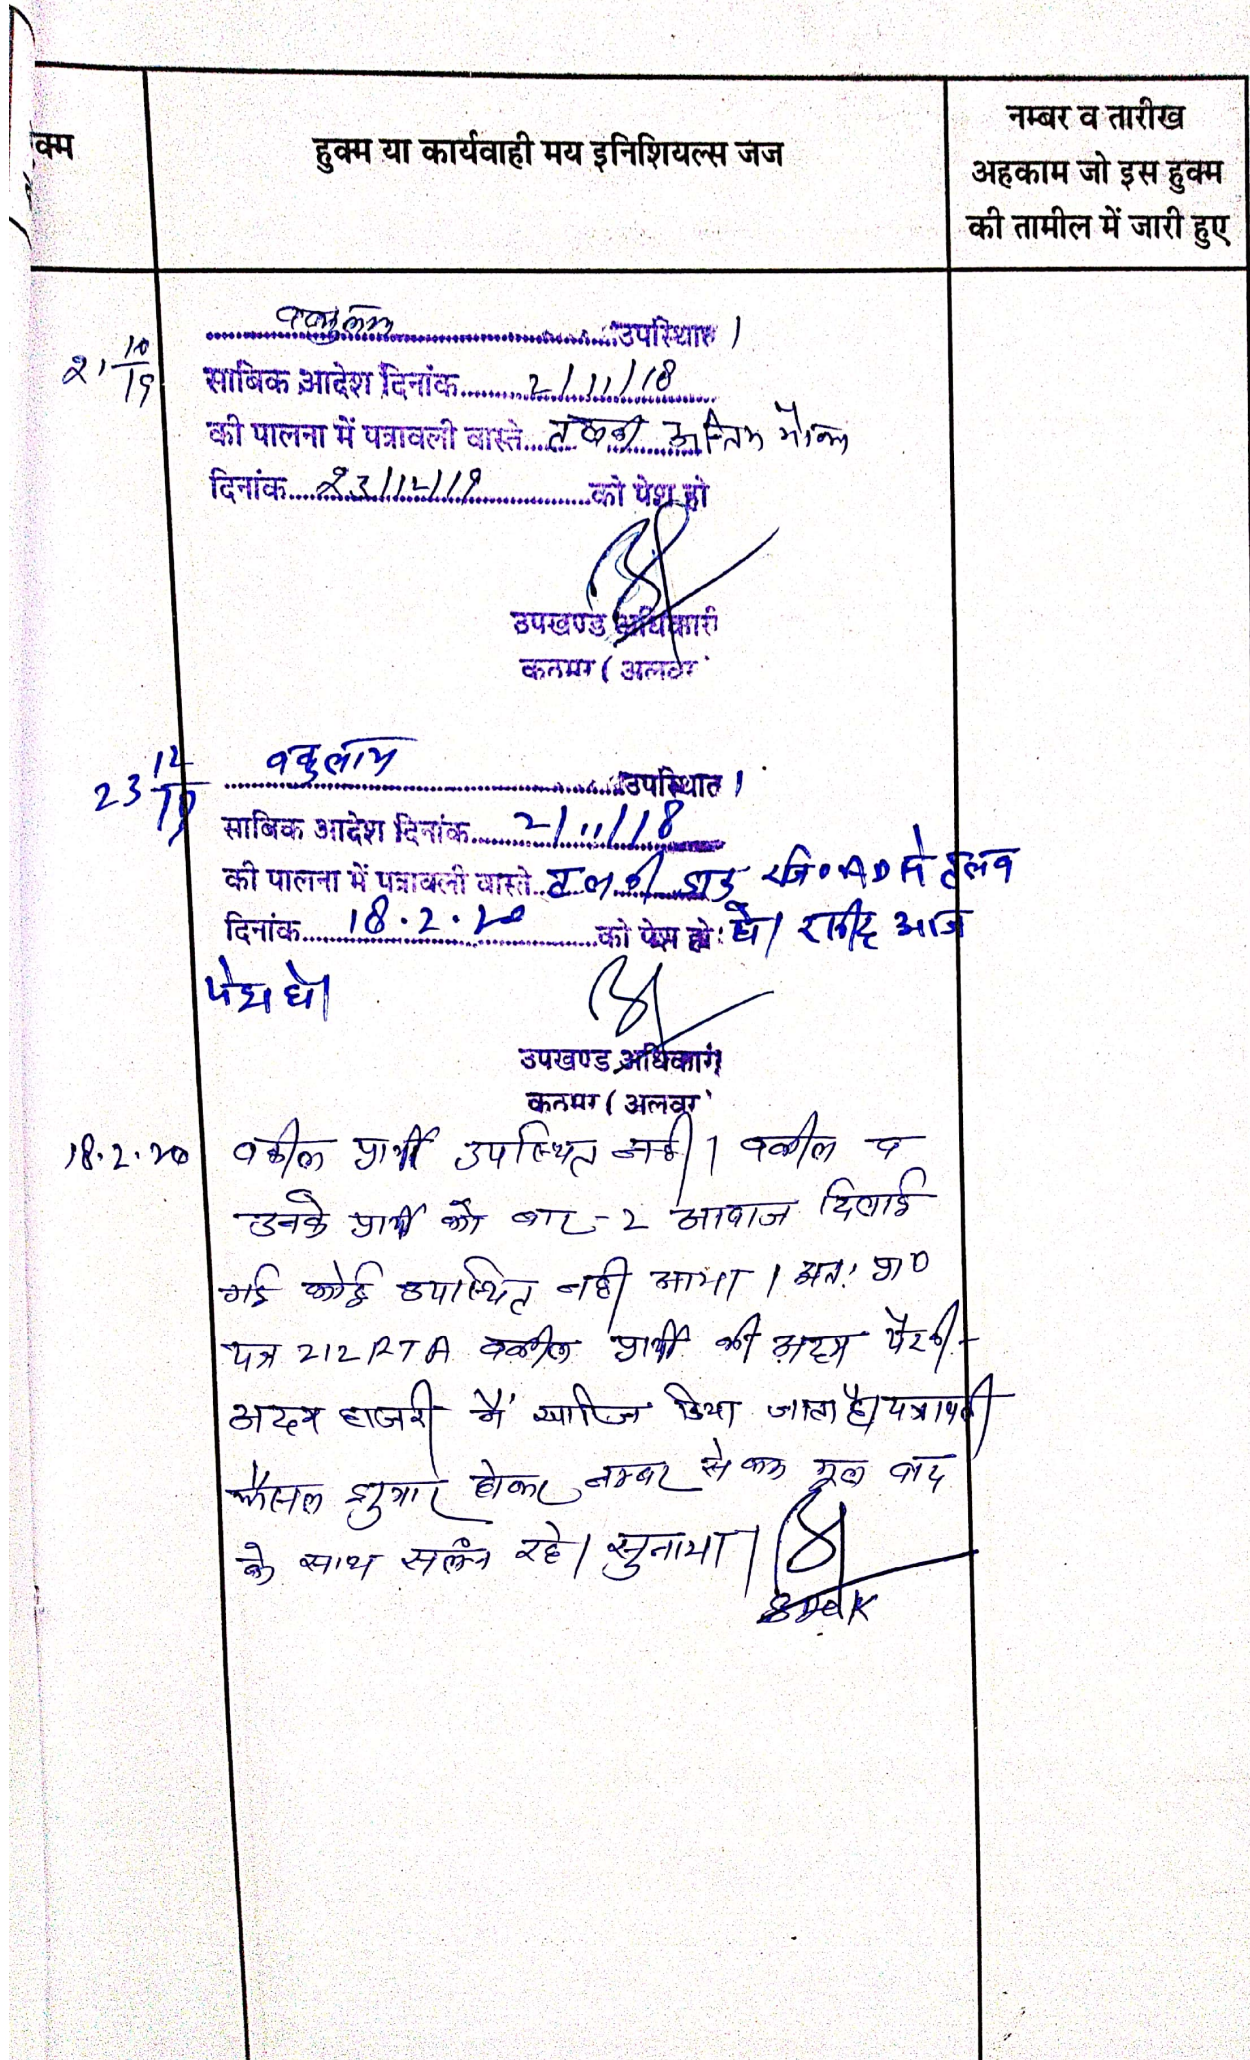 क्म
हुक्म या कार्यवाही मय इनिशियल्स जज
नम्बर व तारीख
अहकाम जो इस हुक्म
की तामील में जारी हुए
21 10/19
वकुलाम उपस्थित।
साबिक आदेश दिनांक 2/11/18
की पालना में पत्रावली वास्ते तलबी अन्तिम मौका
दिनांक 23/12/19 को पेश हो
उपखण्ड अधिकारी
कठूमर (अलवर
23 12/19
वकुलाम उपस्थित।
साबिक आदेश दिनांक 2/11/18
की पालना में पत्रावली वास्ते तलबी रजि० AD से तलब
दिनांक 18.2.20 को पेश हो। रसीद आज
पेश हो।
उपखण्ड अधिकारी
कठूमर (अलवर
18.2.20
वकील प्रार्थी उपस्थित नही। वकील व
उनके प्रार्थी को बार-2 आवाज दिलाई
गई कोई उपस्थित नही आया। अत: प्रा०
पत्र 212 RTA वकील प्रार्थी की अदम पैरवी-
अदम हाजरी में खारिज किया जाता है। पत्रावली
फैसल शुमार होकर नम्बर से कम मूल वाद
के साथ सलंग्न रहे। सुनाया।